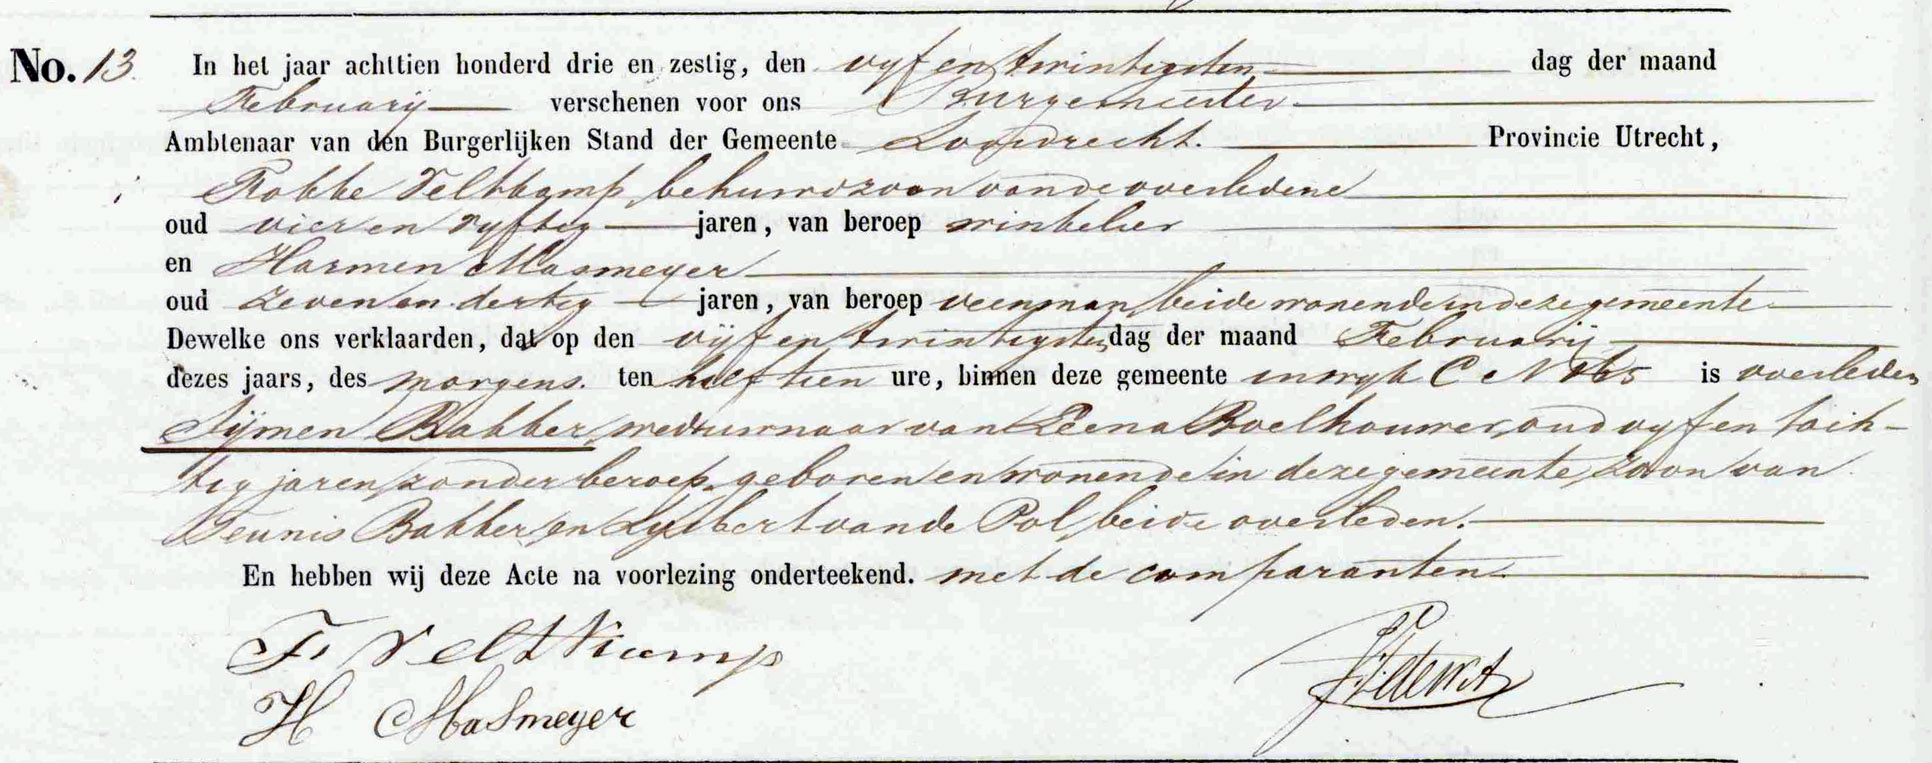 No. 13. In het jaar achttien honderd drie en zestig, den vyf en twintigsten dag der maand
Februarij verschenen voor ons Burgemeester
Ambtenaar van den Burgerlijken Stand der Gemeente Loosdrecht. Provincie Utrecht,
Fokke Veltkamp, behuwdzoon van de overledene
oud vier en vyftig jaren, van beroep winkelier
en Harmen Masmeyer
oud zeven en dertig jaren, van beroep veenman, beide wonende in deze gemeente
Dewelke ons verklaarden, dat op den vyf en twintigsten dag der maand Februarij
dezes jaars, des morgens. ten half tien ure, binnen deze gemeente in wyk C N is overleden
Sijmen Bakker, weduwnaar van Leena Boelhouwer, oud vyf en tach-
tig jaren, zonder beroep, geboren en wonende in deze gemeente, zoon van
Teunis Bakker, en Lysbert van de Pol, beide overleden.
En hebben wij deze Acte na voorlezing onderteekend. met de comparanten.
F. Veltkamp
H Masmeyer